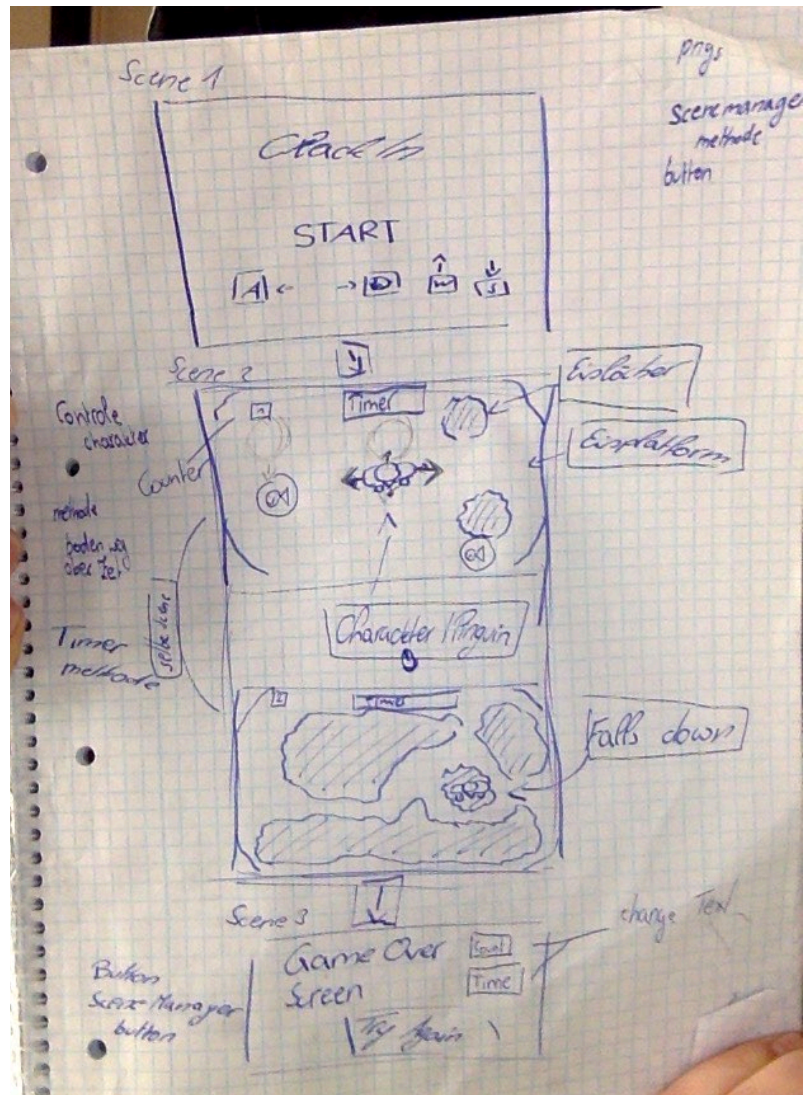 Scene 1
pngs
Scene manager
methode
button
START
A
D
W
S
Scene 2
Timer
Eislöcher
Eisplatform
Controle
character
Counter
methode
boden weg
über Zeit
selbe Scene
Timer
methode
Character / Pinguin
Timer
Falls down
Scene 3
change Text
Game Over
Screen
Count
Time
Try Again
Button
Scene Manager
button